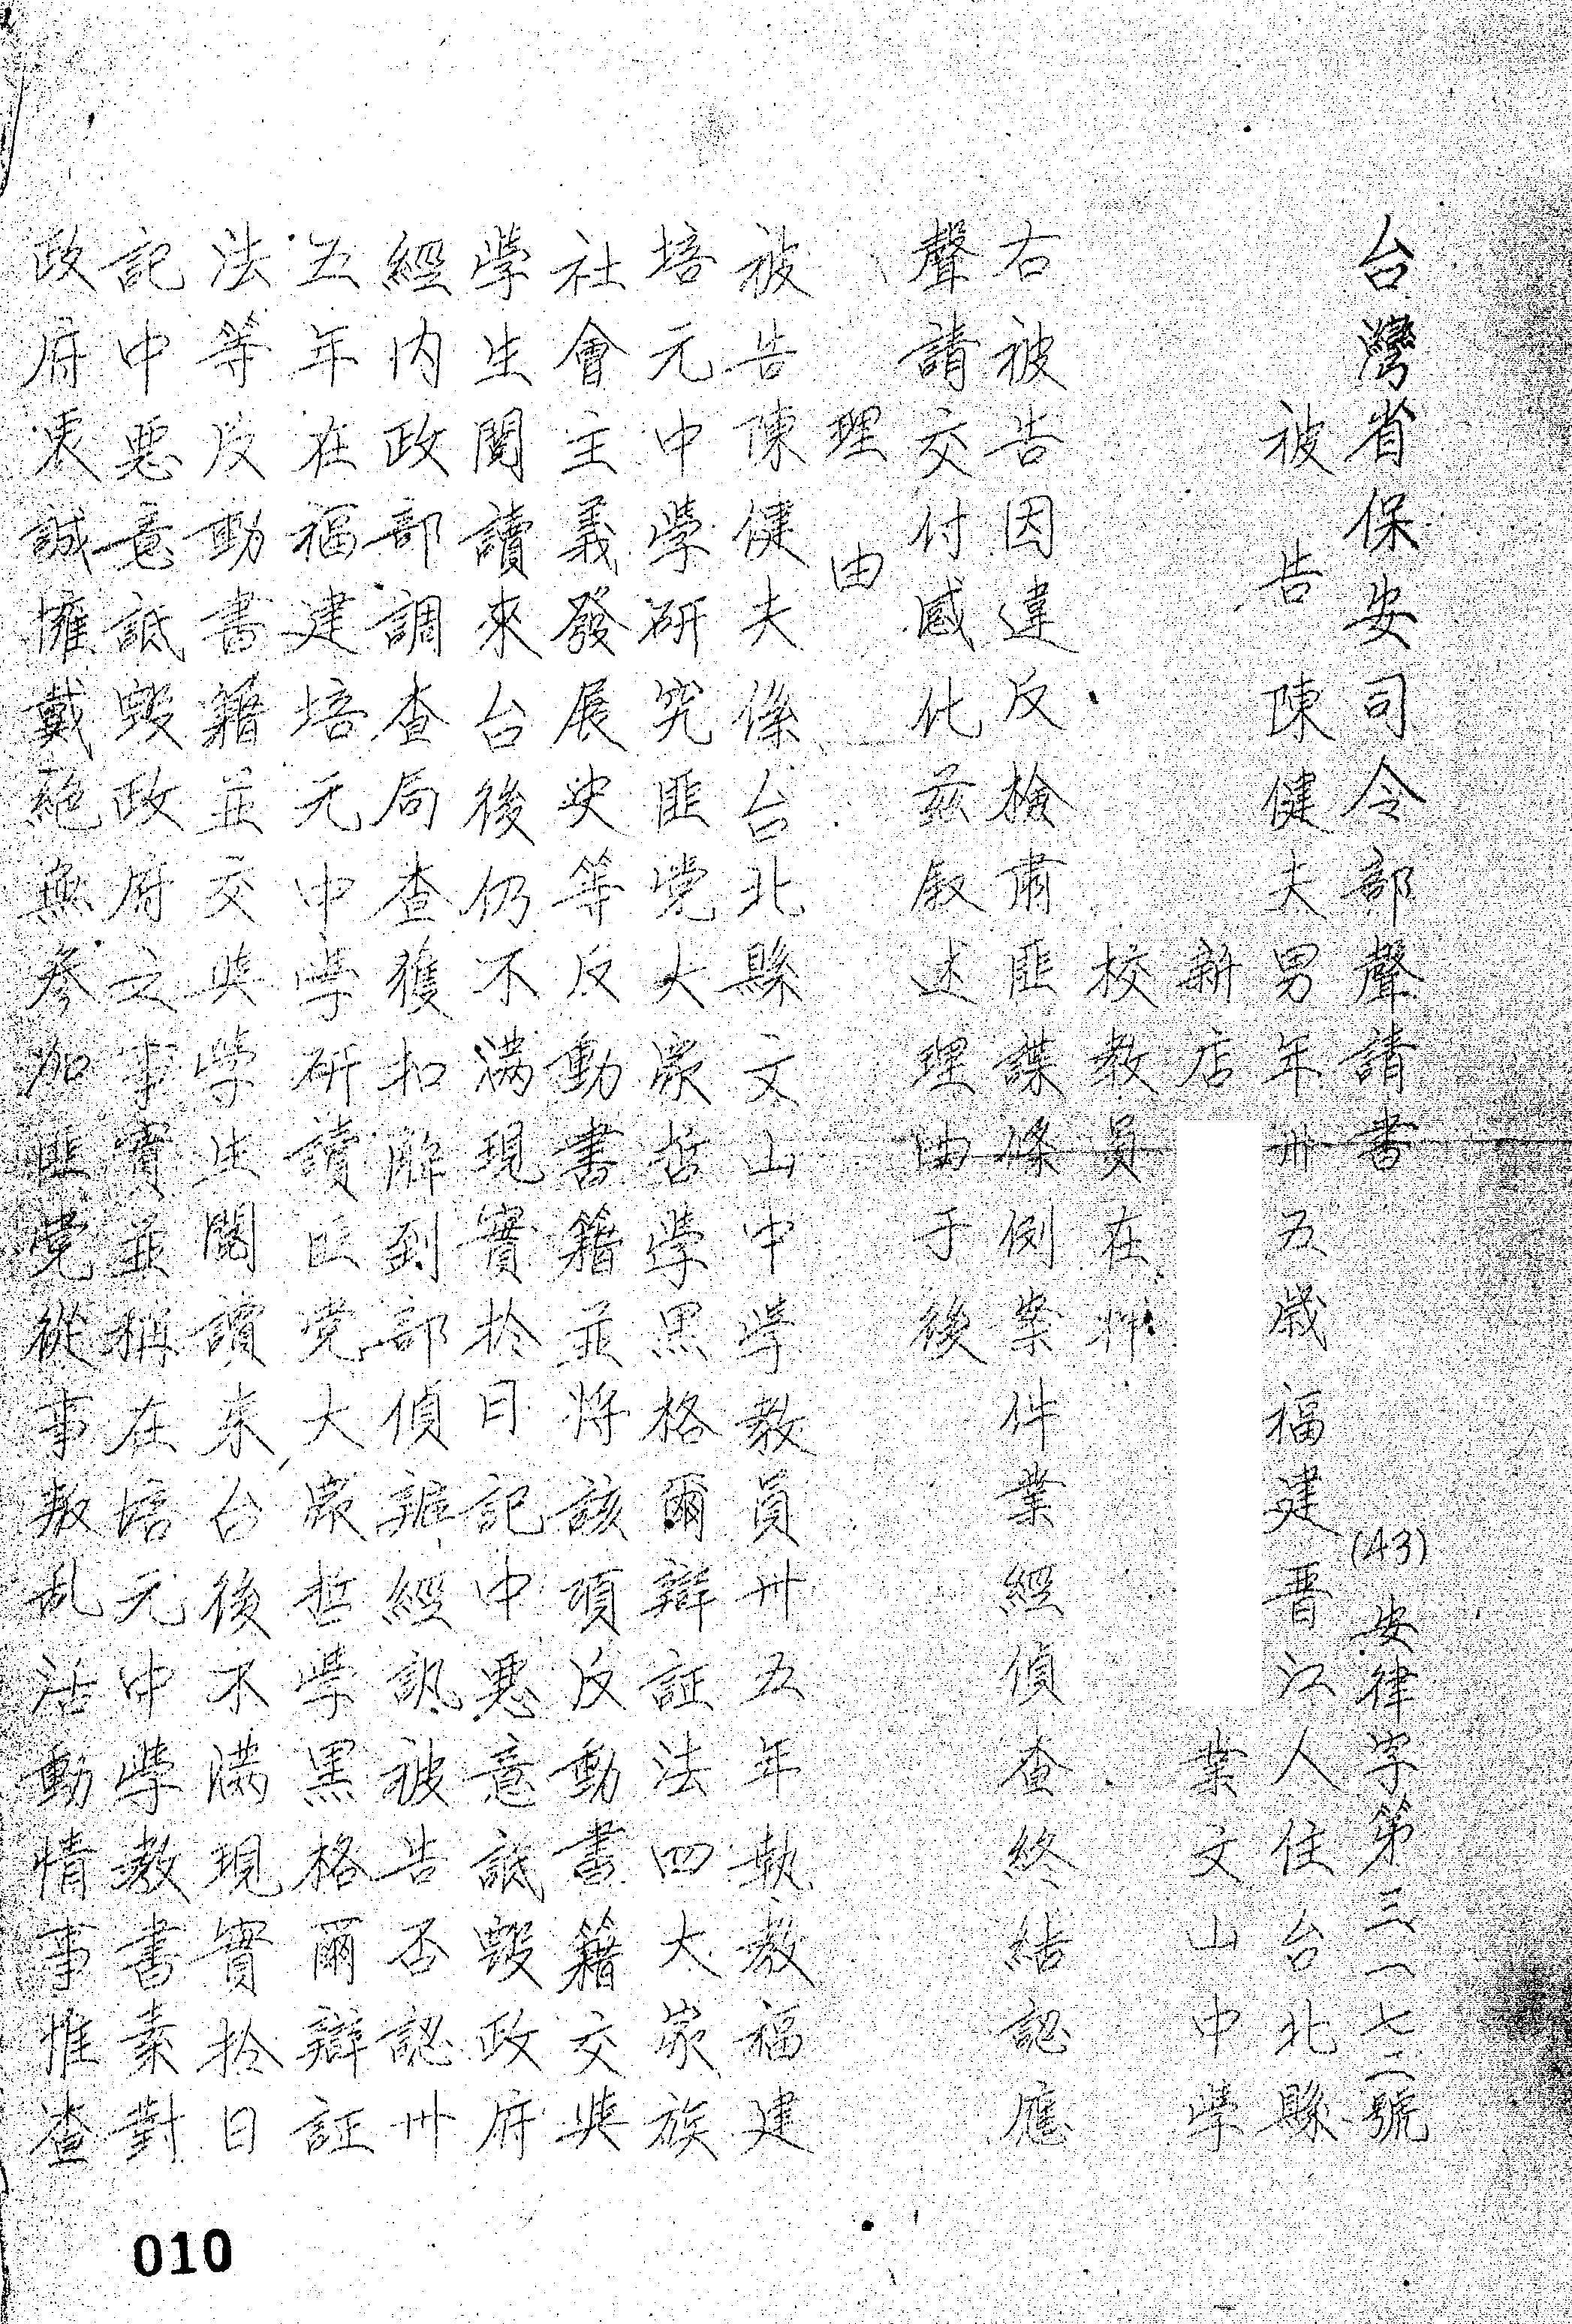 台灣省保安司令部聲請書 (43)安律字第三一七二號
被告 陳健夫 男 年卅五歲 福建晋江人 住台北縣
新店 業文山中學
校教員 在押
右被告因違反檢肅匪諜條例案件業經偵查終結認應
聲請交付感化茲叙述理由于後
理由
被告陳健夫係台北縣文山中學教員卅五年執教福建
培元中學研究匪党大衆哲學黑格爾辯証法四大家族
社會主義發展史等反動書籍並將該項反動書籍交與
學生閱讀來台後仍不滿現實於日記中惡意詆毀政府
經内政部調查局查獲扣解到部偵辦經訊被告否認卅
五年在福建培元中學研讀匪党大衆哲學黑格爾辯証
法等反動書籍並交與學生閱讀來台後不滿現實於日
記中惡意詆毀政府之事實並稱在培元中學教書素對
政府表誠擁戴絕無參加匪党從事叛乱活動情事惟查
010